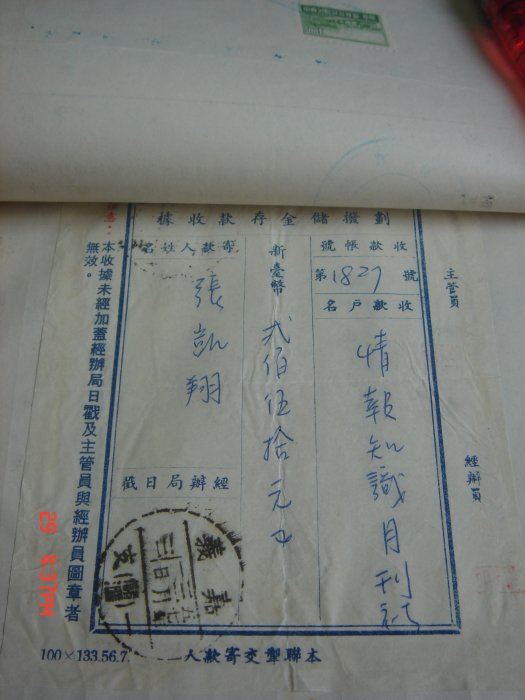 劃撥儲金存款收據
收款帳號
第1827號
收款戶名
情報知識月刊社
新臺幣
弍佰伍拾元正
寄款人姓名
張凱翔
經辦局日戳
嘉義
主管員
經辦員
本收據未經加蓋經辦局日戳及主管員與經辦員圖章者
無效。
本聯掣交寄款人
100×133.56.7.
29 6:37PM